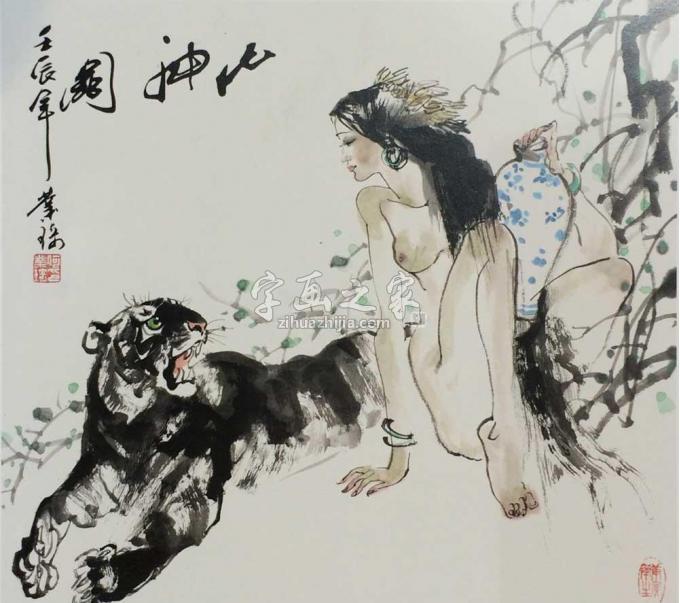 山神圖
壬辰年
業琦
字画之家
zihuazhijia.com